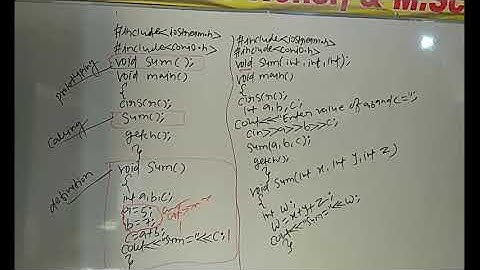 & M.Sc
#include<iostream.h>
#include<conio.h>
prototyping
void sum();
void main()
{
clrs(rc);
calling
sum();
getch();
}
definition
void sum()
{
int a,b,c;
a=5;
b=7;
c=a+b;
cout<<"sum="<<c;
}
#include<iostream.h>
#include<conio.h>
void sum(int,int,int);
void main()
{
clrs(rc);
int a,b,c;
cout<<"Enter value of a,b and c=";
cin>>a>>b>>c;
sum(a,b,c);
getch();
}
void sum(int x, int y, int z)
{
int w;
w=x+y+z;
cout<<"sum="<<w;
}